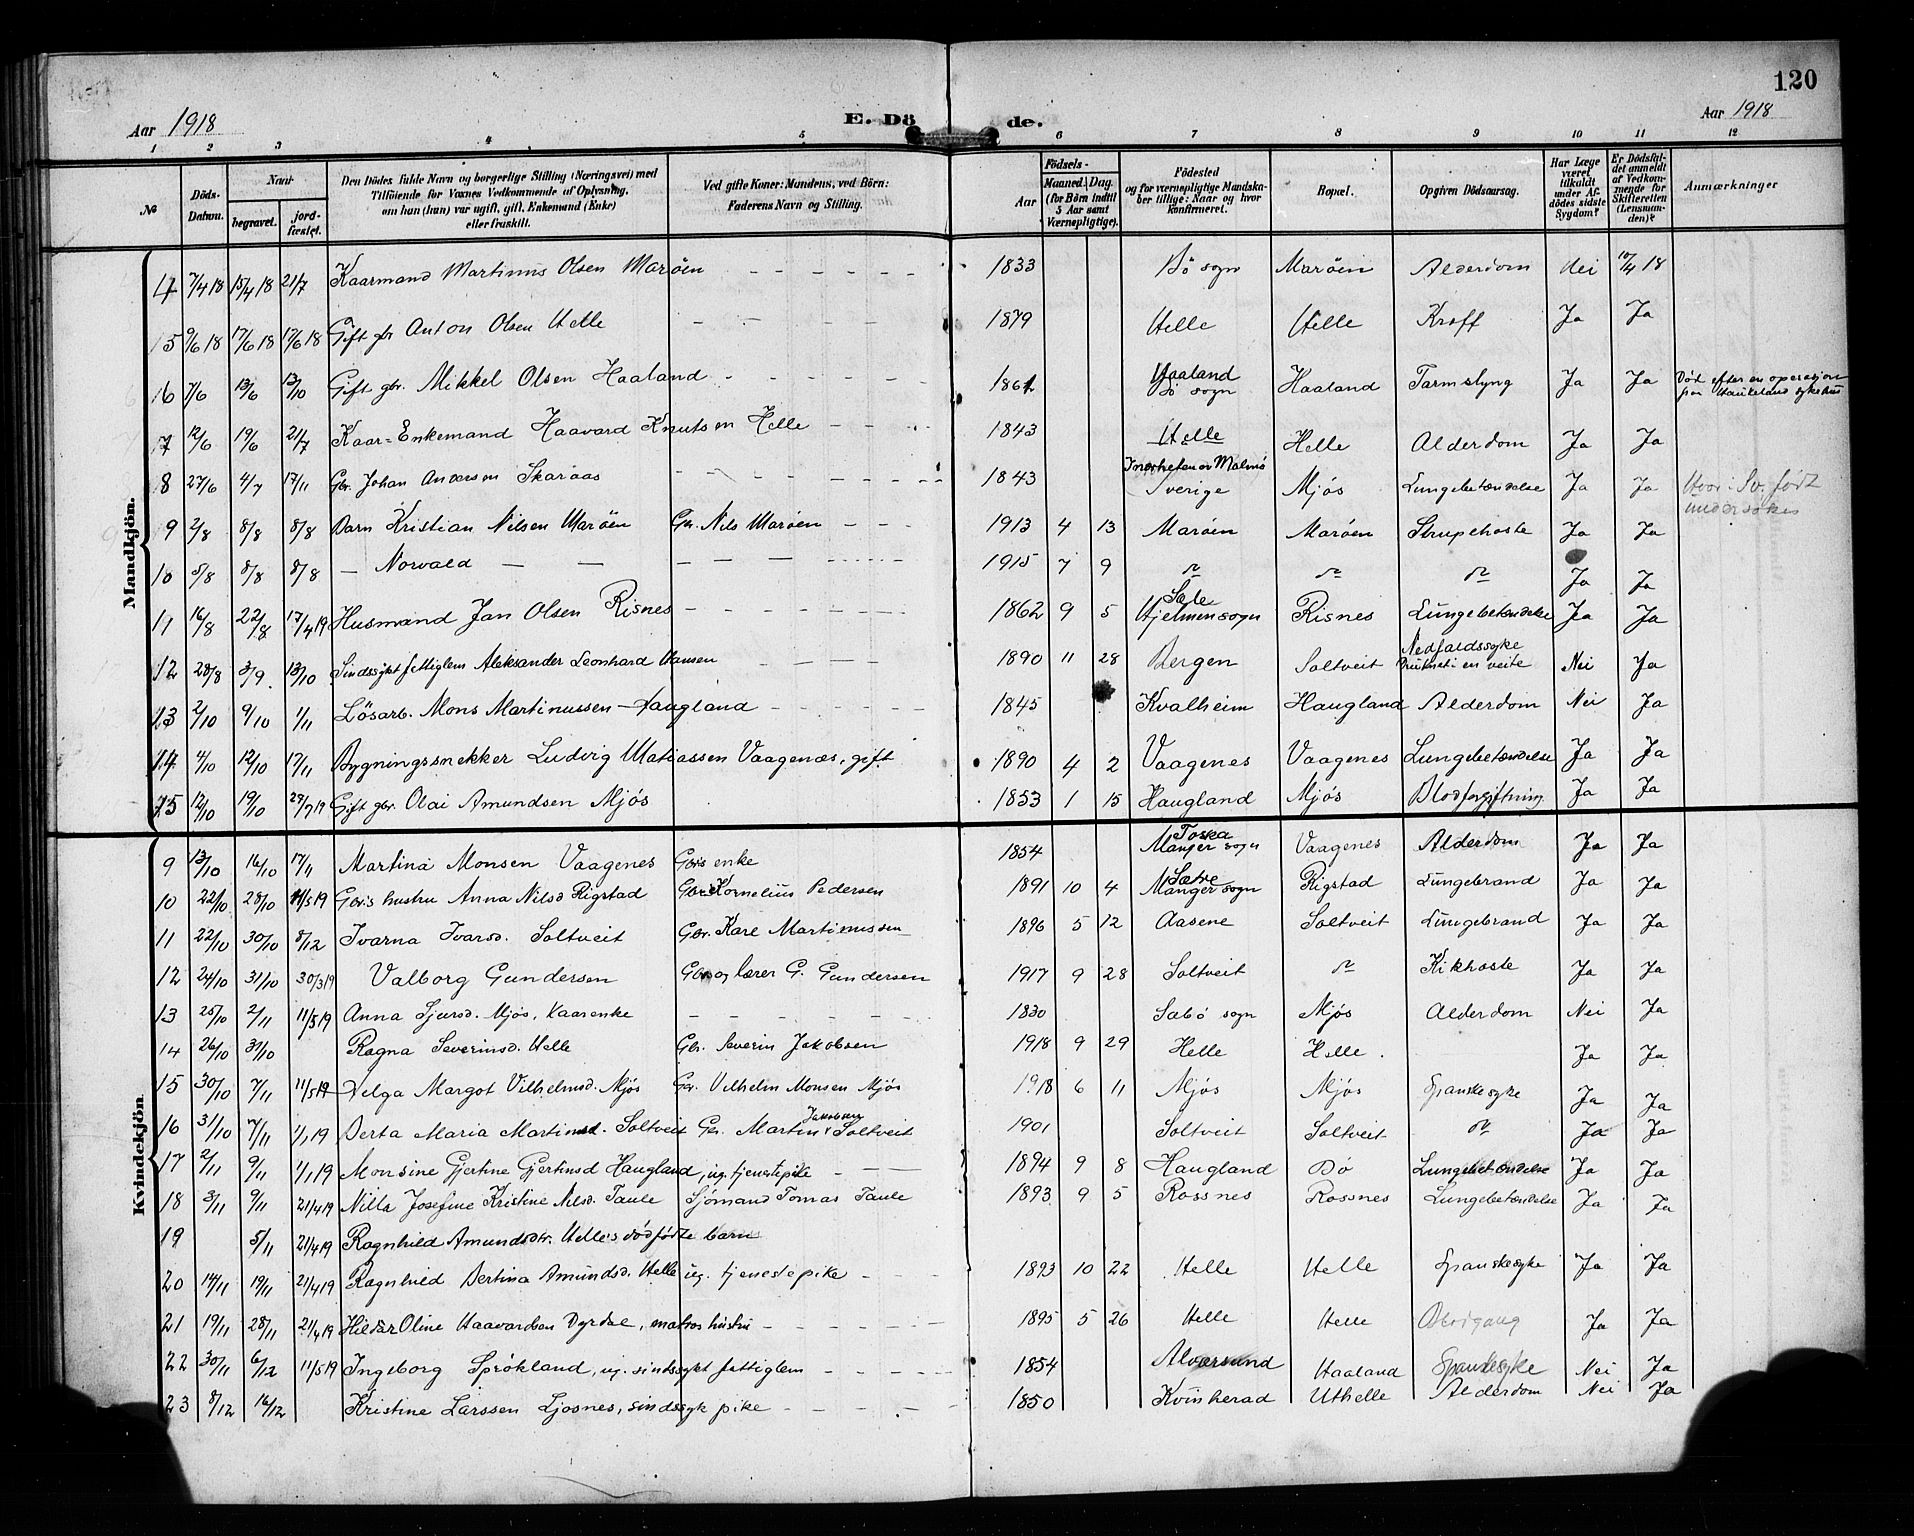 120
Aar 1918 E. Dö de. Aar 1918
1 2 3 4 5 6 7 8 9 10 11 12
№ Döds-Datum. Naar begravet. jordfæstet. Den Dödes fulde Navn og borgerlige Stilling (Næringsvei) med Tilföiende for Voxnes Vedkommende af Oplysning, om han (hun) var ugift, gift, Enkemand (Enke) eller fraskilt. Ved gifte Koner: Mandens, ved Börn: Faderens Navn og Stilling. Födsels- Aar Maaned. Dag. (for Börn indtil 5 Aar samt Værnepligtige). Födested og for værnepligtige Mandskaber tillige: Naar og hvor konfirmeret. Bopæl. Opgiven Dödsaarsag. Har Læge været tilkaldt under Afdödes sidste Sygdom? Er Dödsfaldet anmeldt af Vedkommende for Skifteretten (Lensmanden)? Anmærkninger
Mandkjön.
4 7/4 18 15/4 18 21/7 Kaarmand Martinus Olsen Maröen 1833 Bö sogn Maröen Alderdom Nei 10/4 18
5 9/6 18 17/6 18 17/6 18 Gift gbr Anton Olsen Helle 1879 Helle Helle Kræft Ja Ja
6 7/6 13/6 13/10 Gift gbr. Mikkel Olsen Haaland 1861 Haaland Bö sogn Haaland Tarmslyng Ja Ja Död efter en operasjon paa Haukeland sykehus
7 12/6 19/6 21/7 Kaar-Enkemand Haavard Knutsen Helle 1843 Helle Helle Alderdom Ja Ja
8 27/6 4/7 17/11 Gbr. Johan Andersen Skaraas 1843 I nærheten av Malmö Sverige Mjös Lungebetændelse Ja Ja Hvor i Sv. född undersökes
9 2/8 8/8 8/8 Barn Kristian Nilsen Maröen Gbr. Nils Maröen 1913 4 13 Maröen Maröen Strupehoste Ja Ja
10 5/8 8/8 8/8 — Norvald — — — 1915 7 9 do do do Ja Ja
11 16/8 22/8 17/4 19 Husmand Jan Olsen Risnes 1862 9 5 Sæle Hjelmensogn Risnes Lungebetændelse Ja Ja
12 28/8 3/9 13/10 Sindssykt fattiglem Aleksander Leonhard Hansen 1890 11 28 Bergen Soltveit Nedfaldssyke Druknet i en veite Nei Ja
13 2/10 9/10 1/11 Lösarb. Mons Martinussen Haugland 1845 Kvalheim Haugland Alderdom Nei Ja
14 4/10 12/10 17/11 Bygningssnekker Ludvig Matiassen Vaagenæs, gift 1890 4 2 Vaagenes Vaagenes Lungebetændelse Ja Ja
15 12/10 19/10 27/7 19 Gift gbr. Olai Amundsen Mjös 1853 1 15 Haugland Mjös Blodforgiftning Ja Ja
Kvindekjön
9 13/10 16/10 17/11 Martina Monsen Vaagenes Gbrs enke 1854 Toska Manger sogn Vaagenes Alderdom Ja Ja
10 22/10 28/10 11/5 19 Gbrs hustru Anna Nilsd Rigstad Gbr Kornelius Pedersen 1891 10 4 Sætre Manger sogn Rigstad Lungebrand Ja Ja
11 22/10 30/10 8/12 Ivarna Ivarsd. Soltveit Gbr. Kare Martinussen 1896 5 12 Aasene Soltveit Lungebrand Ja Ja
12 24/10 31/10 30/3 19 Valborg Gundersen Gbr og lærer G. Gundersen 1917 9 28 Soltveit do Kikhoste Ja Ja
13 25/10 2/11 11/5 19 Anna Sjursd. Mjös, Kaarenke 1830 Sæbö sogn Mjös Alderdom Nei Ja
14 26/10 31/10 Ragna Severinsd. Helle Gbr. Severin Jakobsen 1918 9 29 Helle Helle. Ja Ja
15 30/10 7/11 11/5 19 Helga Margot Vilhelmsd. Mjös Gbr. Vilhelm Monsen Mjös 1918 6 11 Mjös Mjös Spanskesyke Ja Ja
16 31/10 7/11 1/1 19 Berta Maria Martinsd. Soltveit Gbr. Martin Jakobsen Soltveit 1901 Soltveit Soltveit do Ja Ja
17 2/11 9/11 1/1 19 Monsine Gjertine Gjertinsd Haugland, ug. tjenestepike 1894 9 8 Haugland Bö Lungebetændelse Ja Ja
18 3/11 9/11 21/4 19 Nilla Josefine Kristine Nilsd. Taule Sjömand Tomas Taule 1893 9 5 Rossnes Rossnes Lungebetændelse Ja Ja
19 5/11 21/4 19 Ragnhild Amundsdtr. Helle's dödfödte barn
20 14/11 19/11 21/4 19 Ragnhild Bertina Amundsd. Helle ug. tjenestepike 1893 10 22 Helle Helle Spanskesyke Ja Ja
21 19/11 28/11 21/4 19 Hilda Oline Haavardsen Dyrdal, matros hustru 1895 5 26 Helle Helle Blodgang Ja Ja
22 30/11 6/12 11/5 19 Ingeborg Sprökland, ug. sindssykt fattiglem 1854 Alversund Haaland Spanskesyke Nei Ja
23 8/12 16/12 Kristine Larssen Ljosnes, sindssyk pike 1850 Kvinherad Uthelle Alderdom Nei Ja